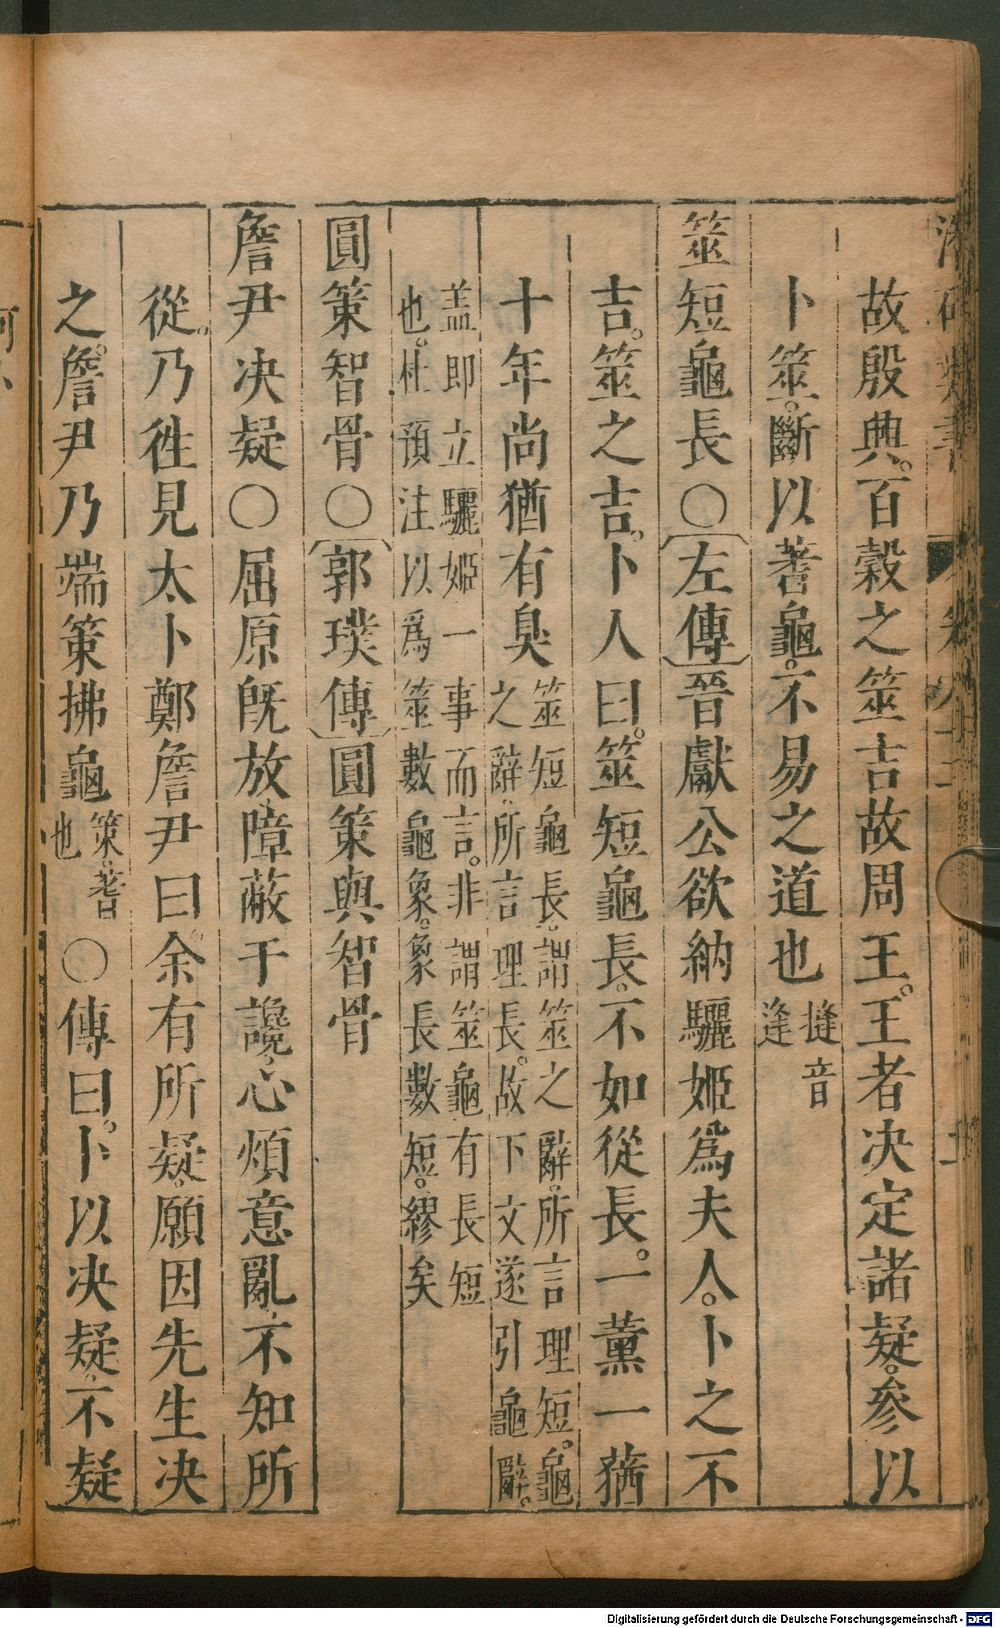 故殷典。百穀之筮吉故周王。王者决定諸疑。參以
卜筮。斷以蓍龜。不易之道也 摓音
逢
筮短龜長○左傳晉獻公欲納驪姬爲夫人。卜之不
吉。筮之吉。卜人曰。筮短龜長。不如從長。一薰一猶
十年尚猶有臭 筮短龜長。謂筮之辭。所言理短。龜
之辭。所言理長。故下文遂引龜辭。
盖即立驪姬一事而言。非謂筮龜有長短
也。杜預注以爲筮數龜象。象長數短。繆矣
圓策智骨○郭璞傳圓策與智骨
詹尹决疑○屈原旣放障蔽于讒心煩意亂不知所
從。乃徃見太卜鄭詹尹曰。余有所疑。願因先生决
之。詹尹乃端策拂龜 策。蓍
也 ○傳曰。卜以决疑不疑
Digitalisierung gefördert durch die Deutsche Forschungsgemeinschaft - DFG